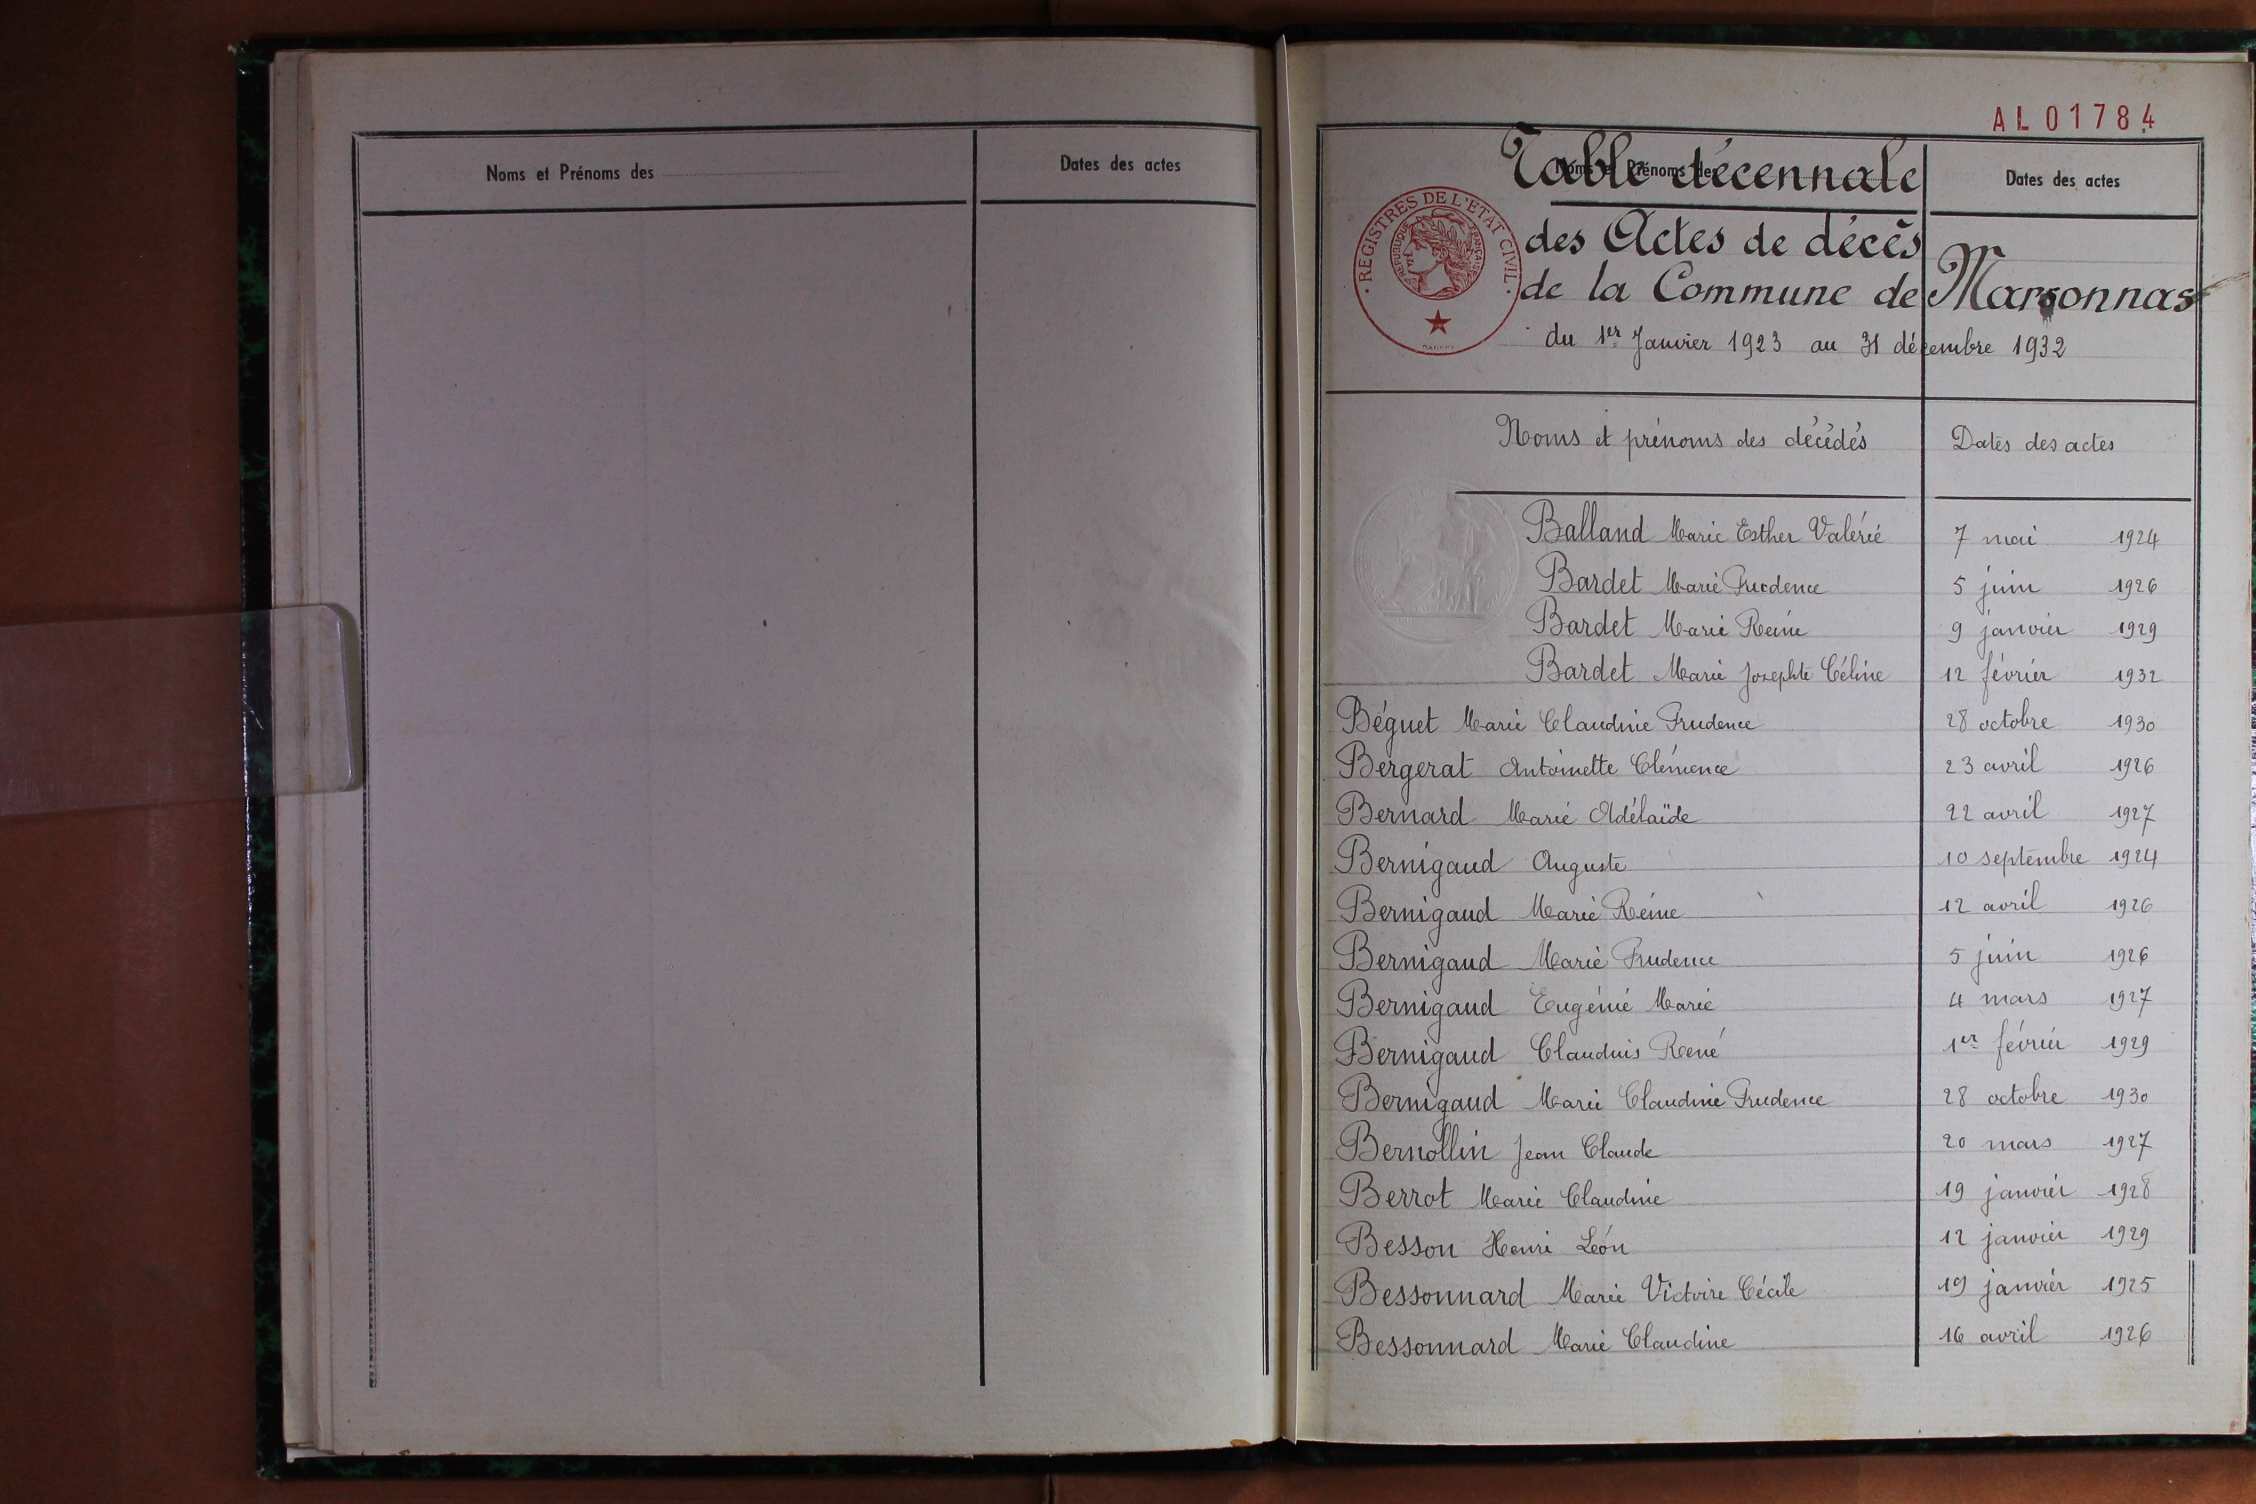 Noms et Prénoms des
Dates des actes
AL01784
Noms et Prénoms des
Dates des actes
Table décennale
REGISTRES DE L'ETAT CIVIL
REPUBLIQUE FRANÇAISE
des Actes de décès
de la Commune de Marsonnas
du 1er Janvier 1923 au 31 décembre 1932
Noms et prénoms des décédés Dates des actes
Balland Marie Esther Valérie 7 mai 1924
Bardet Marie Prudence 5 juin 1926
Bardet Marie Reine 9 janvier 1929
Bardet Marie Josephte Céline 12 février 1932
Béguet Marie Claudine Prudence 28 octobre 1930
Bergerat Antoinette Clémence 23 avril 1926
Bernard Marie Adélaïde 22 avril 1927
Bernigaud Auguste 10 septembre 1924
Bernigaud Marie Reine 12 avril 1926
Bernigaud Marie Prudence 5 juin 1926
Bernigaud Eugénie Marie 4 mars 1927
Bernigaud Claudius René 1er février 1929
Bernigaud Marie Claudine Prudence 28 octobre 1930
Bernollin Jean Claude 20 mars 1927
Berrot Marie Claudine 19 janvier 1928
Besson Henri Léon 12 janvier 1929
Bessonnard Marie Victoire Cécile 19 janvier 1925
Bessonnard Marie Claudine 16 avril 1926